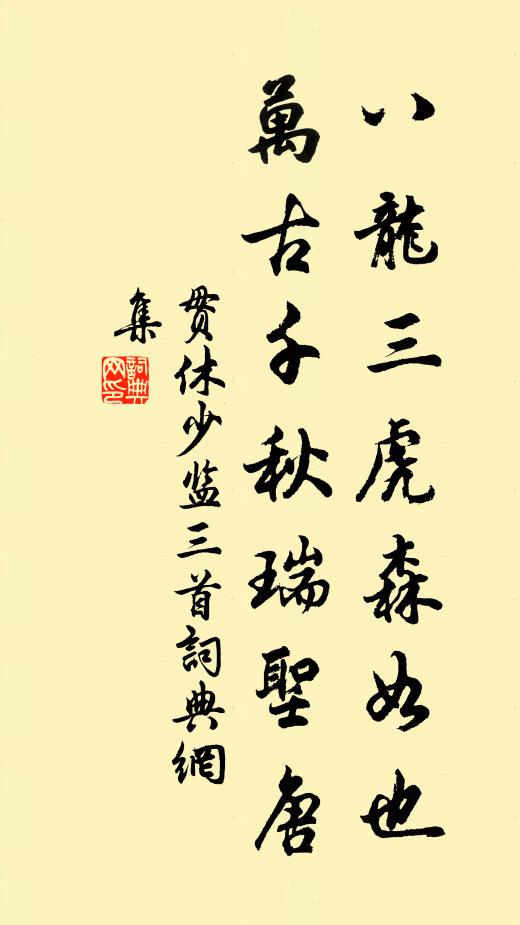 八龍三虎森如也
萬古千秋瑞聖唐
貫休少监三首詞典網
集
詞典網印